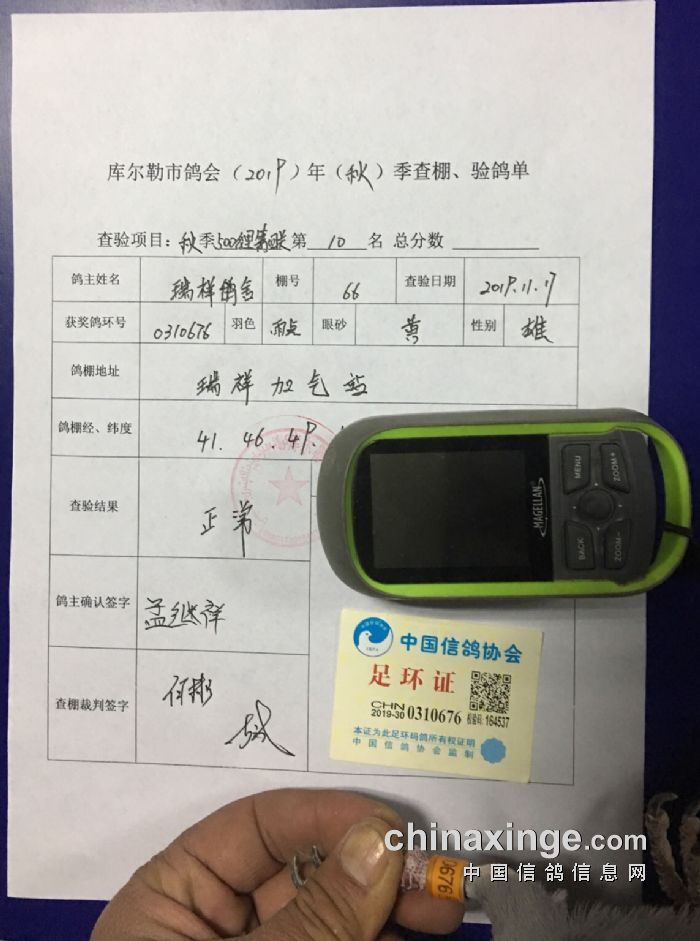 库尔勒市鸽会（2019）年（秋）季查棚、验鸽单
查验项目：秋季500 第 10 名 总分数
鸽主姓名 瑞祥鸽舍 棚号 66 查验日期 2019.11.17
获奖鸽环号 0310676 羽色 雨点 眼砂 黄 性别 雄
鸽棚地址 瑞祥加气站
鸽棚经、纬度 41.46.49.
查验结果 正常
鸽主确认签字 孟继祥
查棚裁判签字 何彬
MENU
ZOOM+
BACK
ZOOM-
MAGELLAN
中国信鸽协会
足环证
CHN
2019-30 0310676 校验码:164537
本证为此足环码鸽所有权证明
中国信鸽协会监制
0676
chinaxinge.com
中国信鸽信息网